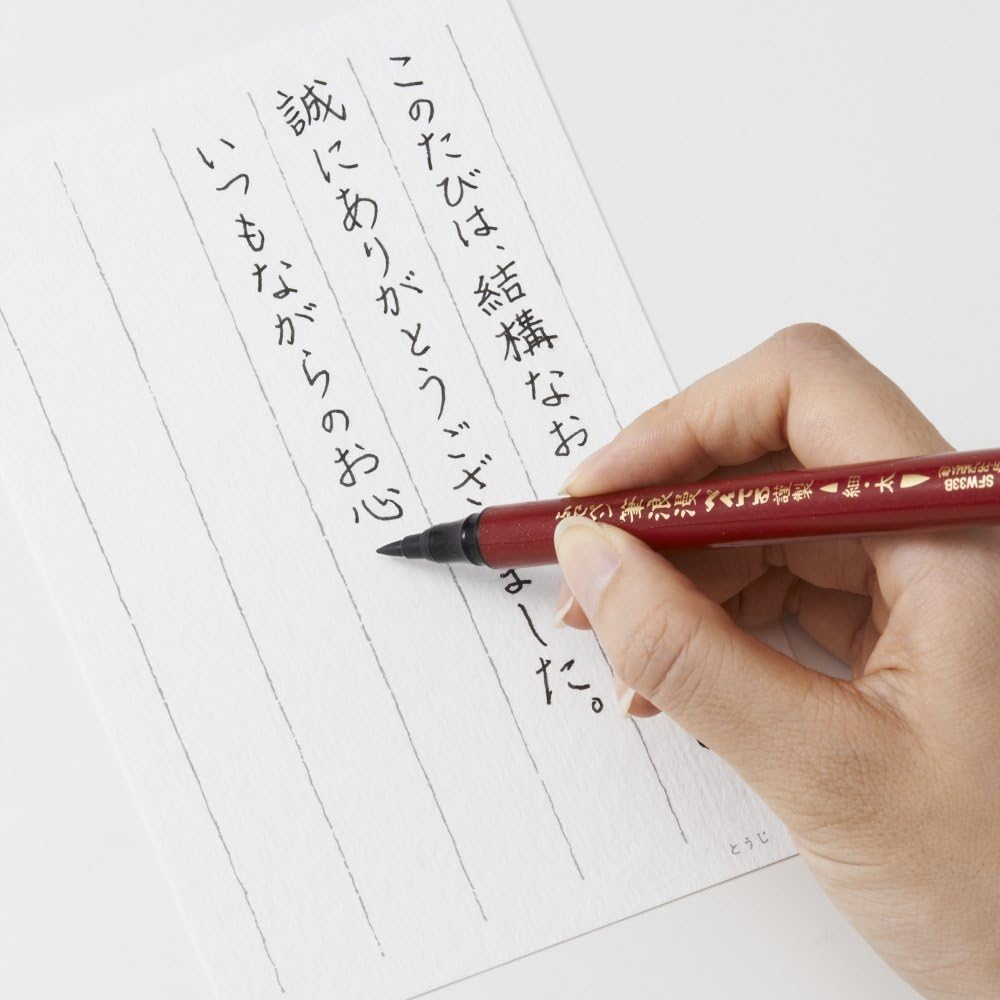 このたびは、結構なお
誠にありがとうござ ました。
いつもながらのお心
筆浪漫 ぺんてる謹製 細・太
SFW33B
とうじ